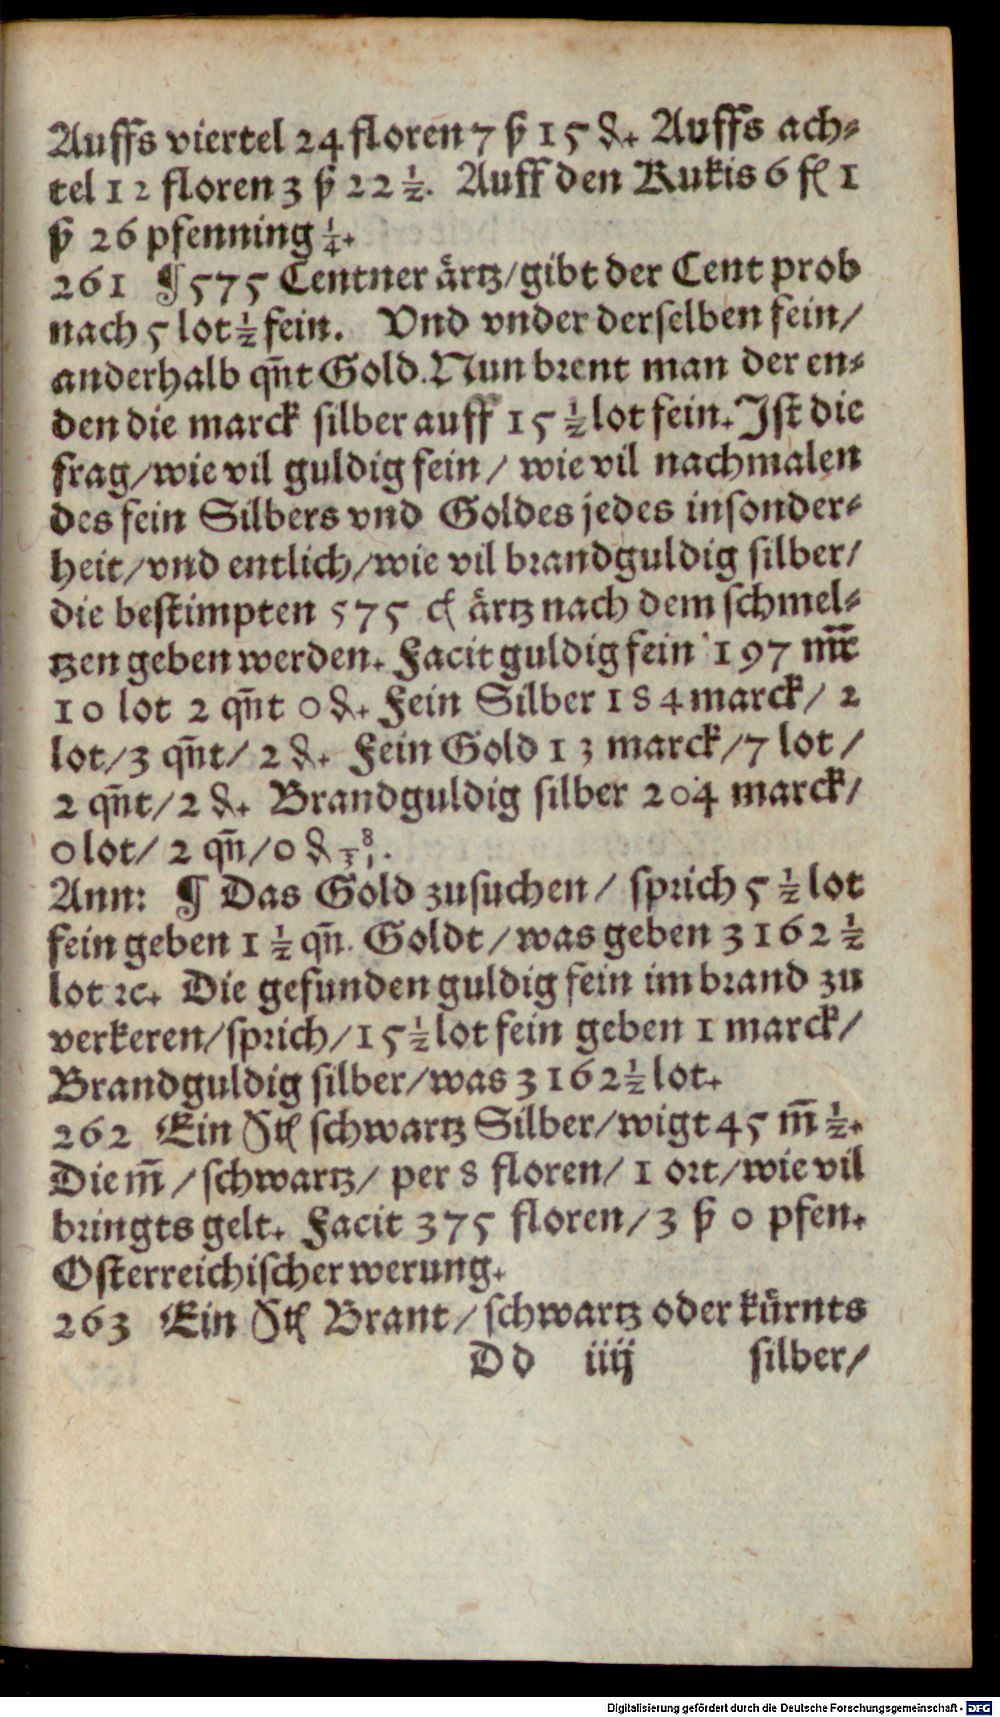 Auffs viertel 24 floren 7 ß 15 ₰. Auffs ach⸗
tel 12 floren 3 ß 22 ½. Auff den Kukis 6 fl 1
ß 26 pfenning ¼.
261 ¶ 575 Centner aͤrtz/gibt der Cent prob
nach 5 lot ½ fein. Vnd vnder derselben fein/
anderhalb qn̄t Gold. Nun brent man der en⸗
den die marck silber auff 15 ½ lot fein. Ist die
frag/wie vil guldig fein/ wie vil nachmalen
des fein Silbers vnd Goldes jedes insonder⸗
heit/vnd entlich/wie vil brandguldig silber/
die bestimpten 575 ct aͤrtz nach dem schmel⸗
tzen geben werden. Facit guldig fein 197 mr̄
10 lot 2 qn̄t 0 ₰. Fein Silber 184 marck/ 2
lot/3 qn̄t/ 2 ₰. Fein Gold 13 marck/7 lot/
2 qn̄t/2 ₰. Brandguldig silber 204 marck/
0 lot/ 2 qn̄/0 ₰ 8/31.
Ann: ¶ Das Gold zusuchen/ sprich 5 ½ lot
fein geben 1 ½ qn̄. Goldt/was geben 3162 ½
lot ⁊c. Die gefunden guldig fein im brand zu
verkeren/sprich/15 ½ lot fein geben 1 marck/
Brandguldig silber/was 3162 ½ lot.
262 Ein Stl schwartz Silber/wigt 45 m̄ ½.
Die m̄/schwartz/ per 8 floren/ 1 ort/wie vil
bringts gelt. Facit 375 floren/3 ß 0 pfen.
Osterreichischer werung.
263 Ein Stl Brant/schwartz oder kuͤrnts
Dd iiij silber/
Digitalisierung gefördert durch die Deutsche Forschungsgemeinschaft - DFG